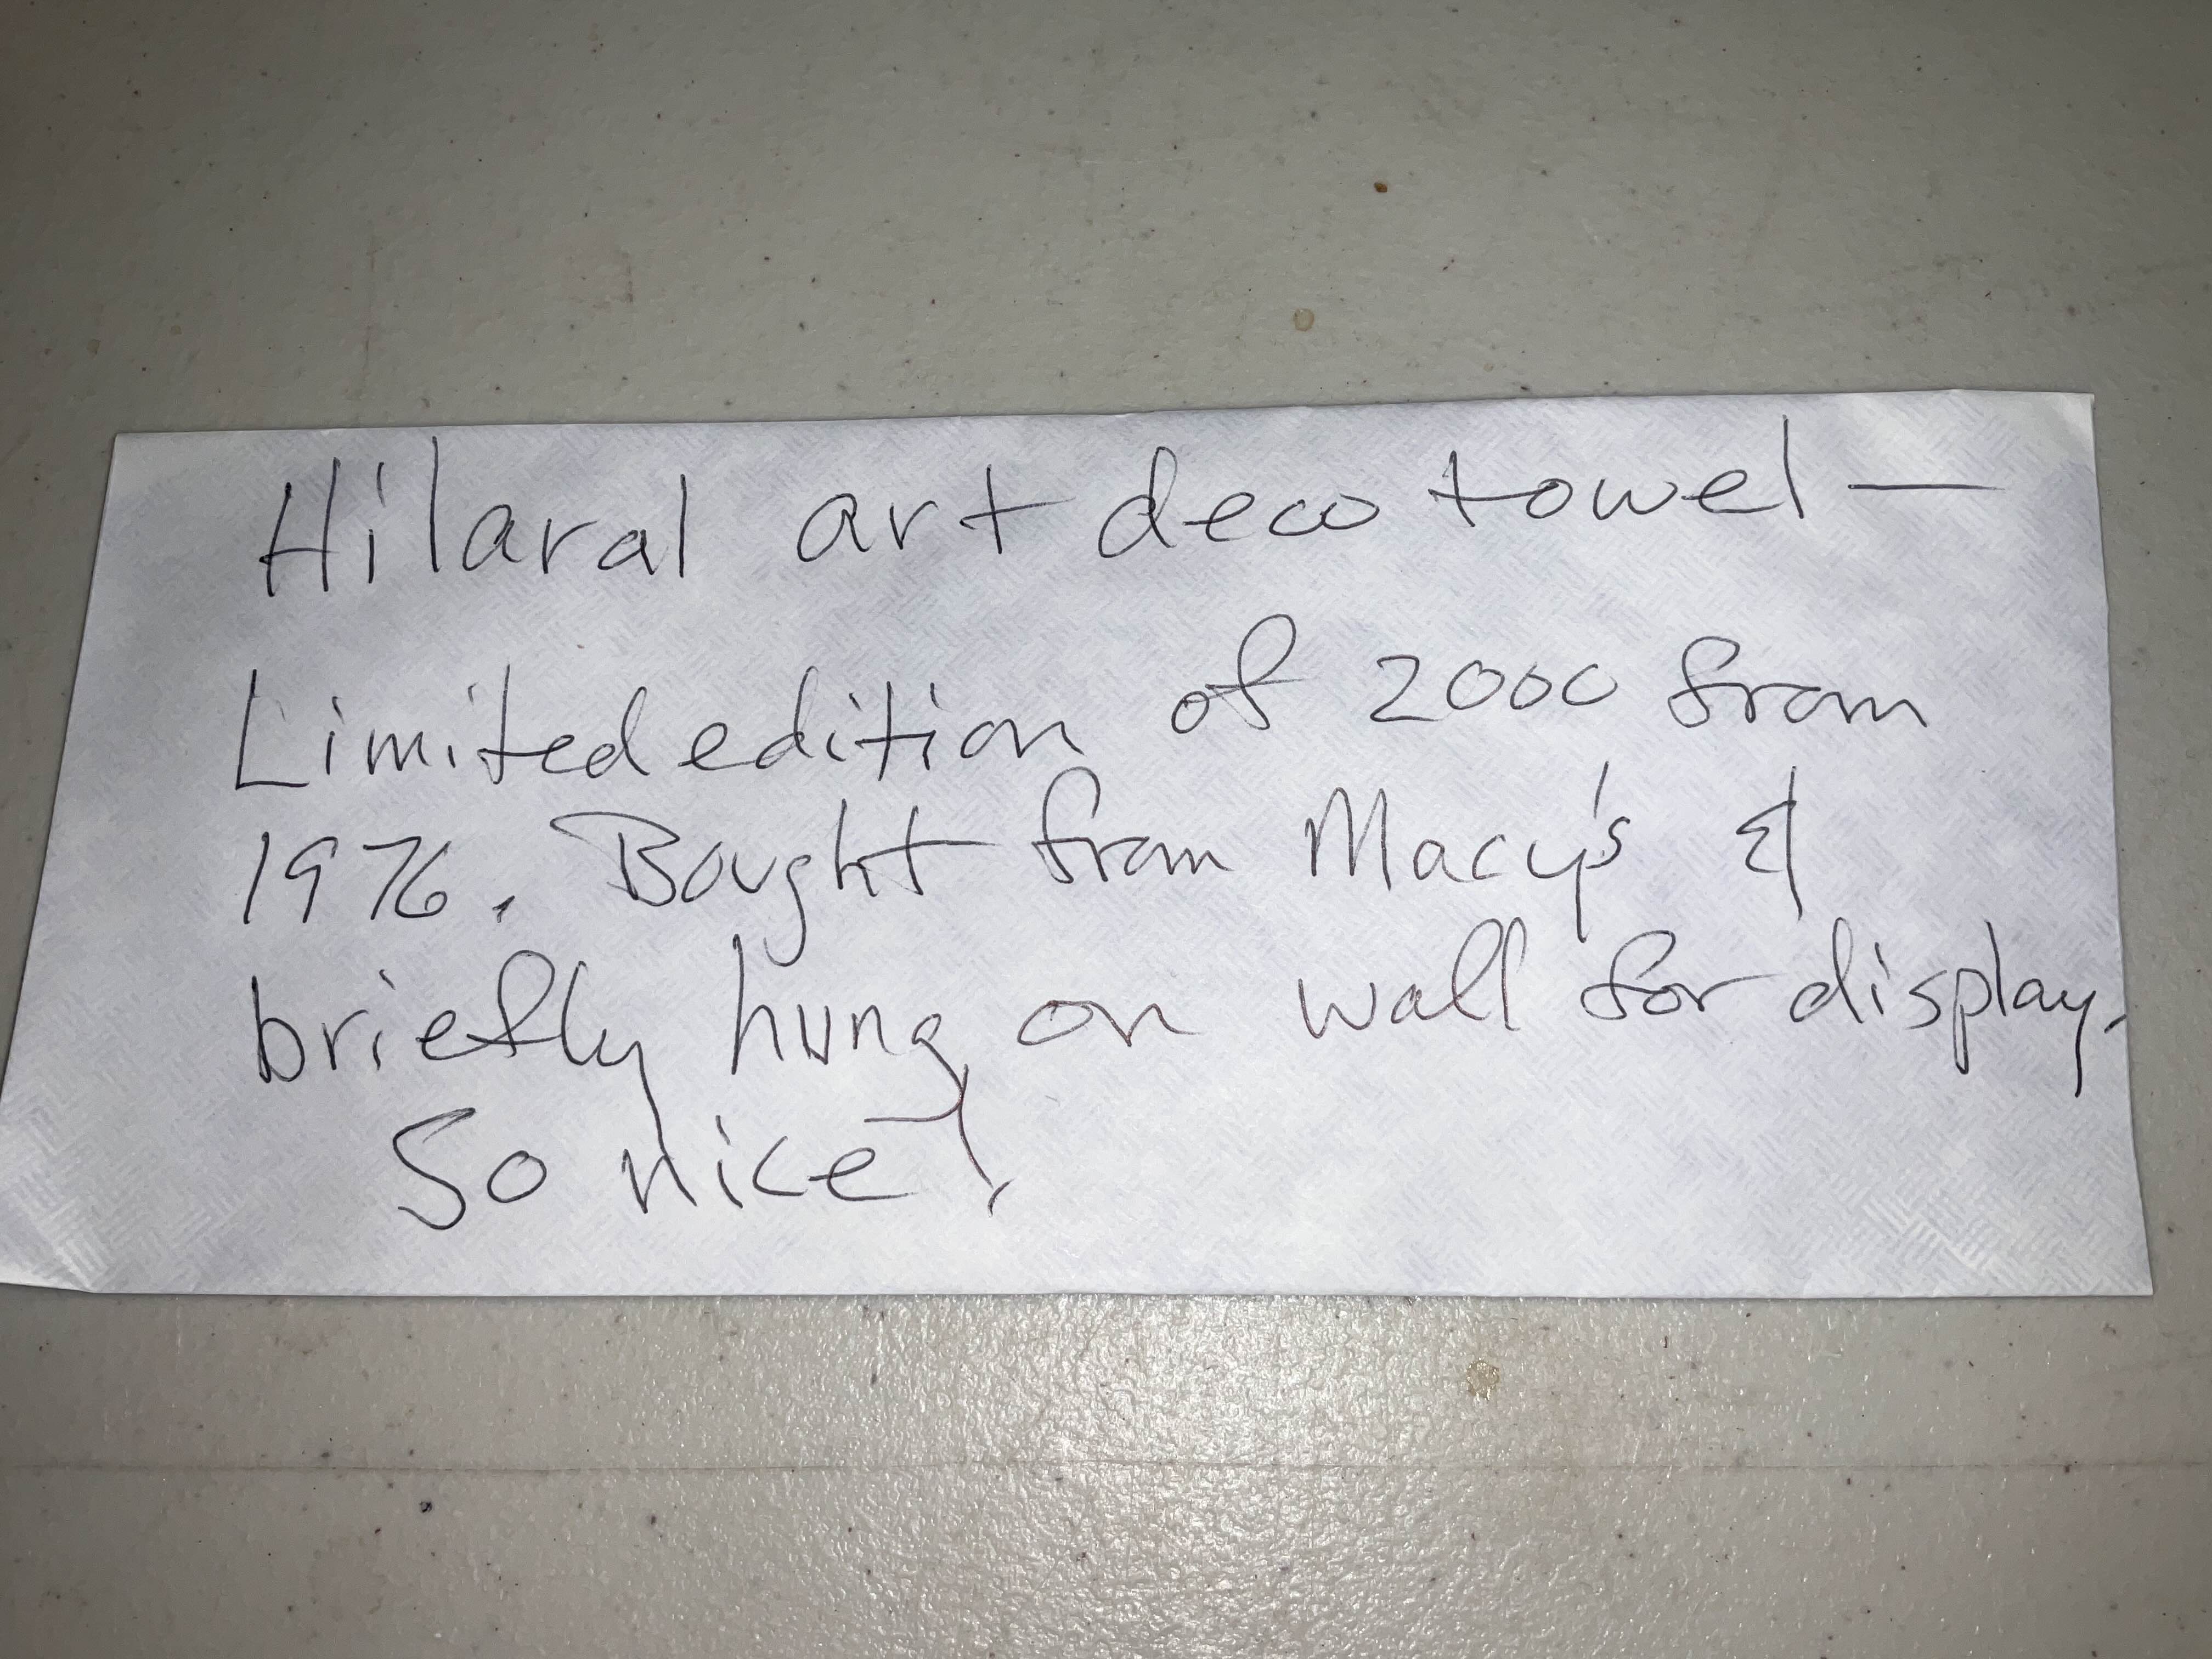 Hilaral art deco towel —
Limited edition of 2000 from
1976. Bought from Macy's &
briefly hung on wall for display.
So nice!